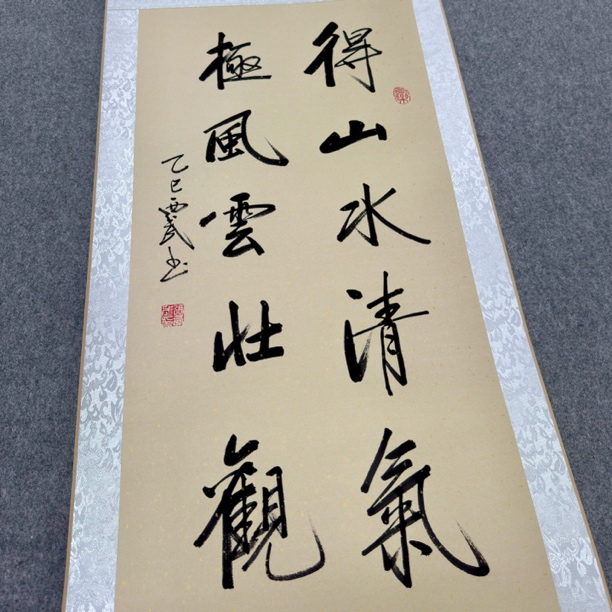 得山水清氣
極風雲壯觀
乙巳西武书